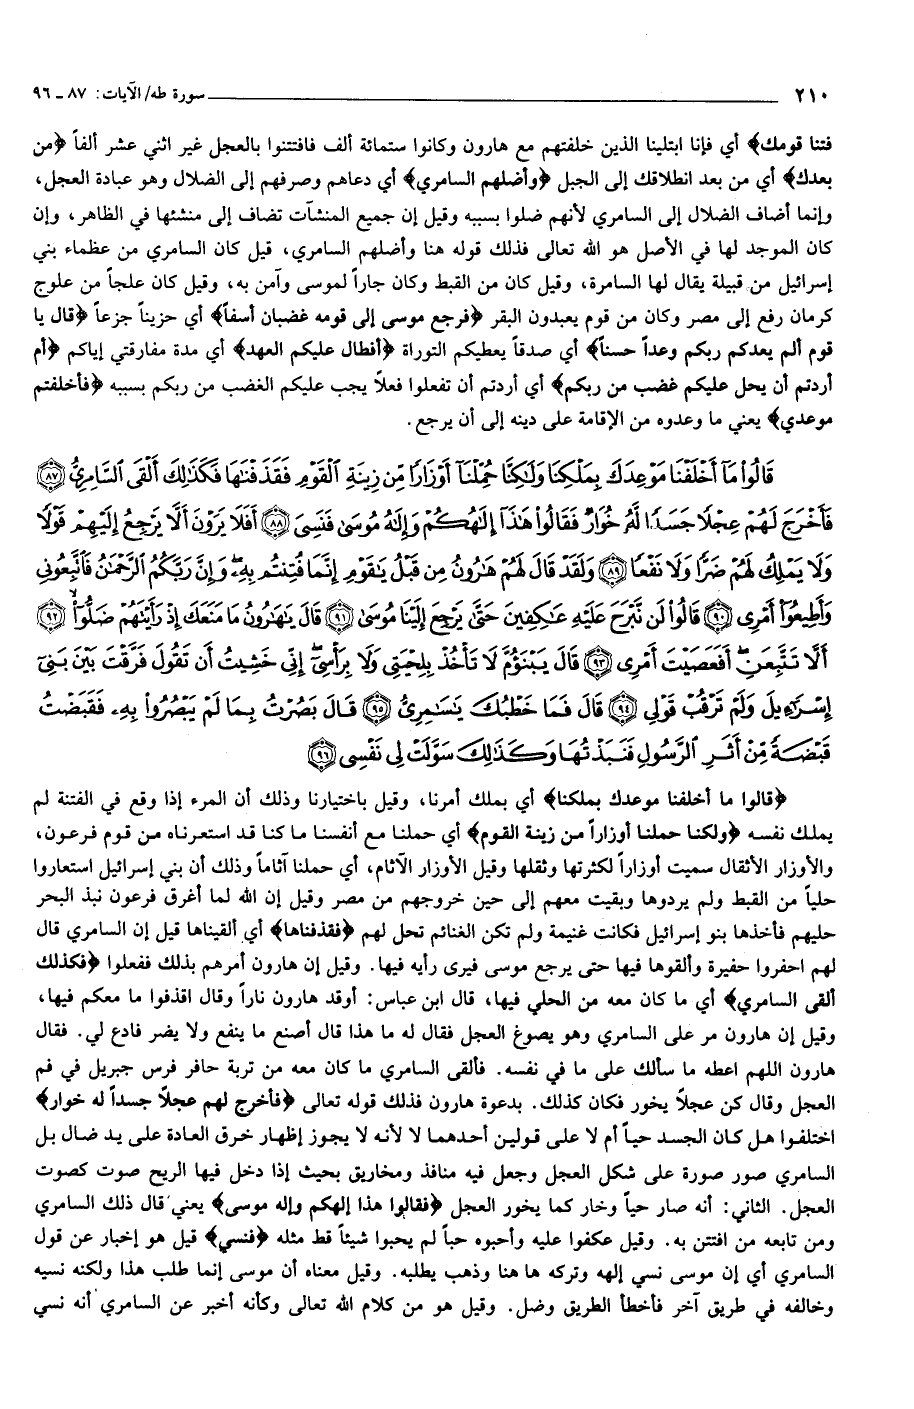 ٢١٠ سورة طه/ الآيات: ٨٧ ـ ٩٦
فتنا قومك﴾ أي فإنا ابتلينا الذين خلفتهم مع هارون وكانوا ستمائة ألف فافتتنوا بالعجل غير اثني عشر ألفاً ﴿من
بعدك﴾ أي من بعد انطلاقك إلى الجبل ﴿وأضلهم السامري﴾ أي دعاهم وصرفهم إلى الضلال وهو عبادة العجل،
وإنما أضاف الضلال إلى السامري لأنهم ضلوا بسببه وقيل إن جميع المنشآت تضاف إلى منشئها في الظاهر، وإن
كان الموجد لها في الأصل هو الله تعالى فذلك قوله هنا وأضلهم السامري، قيل كان السامري من عظماء بني
إسرائيل من قبيلة يقال لها السامرة، وقيل كان من القبط وكان جاراً لموسى وآمن به، وقيل كان علجاً من علوج
كرمان رفع إلى مصر وكان من قوم يعبدون البقر ﴿فرجع موسى إلى قومه غضبان أسفاً﴾ أي حزيناً جزعاً ﴿قال يا
قوم ألم يعدكم ربكم وعداً حسناً﴾ أي صدقاً يعطيكم التوراة ﴿أفطال عليكم العهد﴾ أي مدة مفارقتي إياكم ﴿أم
أردتم أن يحل عليكم غضب من ربكم﴾ أي أردتم أن تفعلوا فعلاً يجب عليكم الغضب من ربكم بسببه ﴿فأخلفتم
موعدي﴾ يعني ما وعدوه من الإقامة على دينه إلى أن يرجع.
قَالُوا۟ مَآ أَخْلَفْنَا مَوْعِدَكَ بِمَلْكِنَا وَلَٰكِنَّا حُمِّلْنَآ أَوْزَارًا مِّن زِينَةِ ٱلْقَوْمِ فَقَذَفْنَٰهَا فَكَذَٰلِكَ أَلْقَى ٱلسَّامِرِىُّ ٨٧
فَأَخْرَجَ لَهُمْ عِجْلًا جَسَدًا لَّهُۥ خُوَارٌ فَقَالُوا۟ هَٰذَآ إِلَٰهُكُمْ وَإِلَٰهُ مُوسَىٰ فَنَسِىَ ٨٨ أَفَلَا يَرَوْنَ أَلَّا يَرْجِعُ إِلَيْهِمْ قَوْلًا
وَلَا يَمْلِكُ لَهُمْ ضَرًّا وَلَا نَفْعًا ٨٩ وَلَقَدْ قَالَ لَهُمْ هَٰرُونُ مِن قَبْلُ يَٰقَوْمِ إِنَّمَا فُتِنتُم بِهِۦ وَإِنَّ رَبَّكُمُ ٱلرَّحْمَٰنُ فَٱتَّبِعُونِى
وَأَطِيعُوٓا۟ أَمْرِى ٩٠ قَالُوا۟ لَن نَّبْرَحَ عَلَيْهِ عَٰكِفِينَ حَتَّىٰ يَرْجِعَ إِلَيْنَا مُوسَىٰ ٩١ قَالَ يَٰهَٰرُونُ مَا مَنَعَكَ إِذْ رَأَيْتَهُمْ ضَلُّوٓا۟ ٩٢
أَلَّا تَتَّبِعَنِ أَفَعَصَيْتَ أَمْرِى ٩٣ قَالَ يَبْنَؤُمَّ لَا تَأْخُذْ بِلِحْيَتِى وَلَا بِرَأْسِىٓ إِنِّى خَشِيتُ أَن تَقُولَ فَرَّقْتَ بَيْنَ بَنِىٓ
إِسْرَٰٓءِيلَ وَلَمْ تَرْقُبْ قَوْلِى ٩٤ قَالَ فَمَا خَطْبُكَ يَٰسَٰمِرِىُّ ٩٥ قَالَ بَصُرْتُ بِمَا لَمْ يَبْصُرُوا۟ بِهِۦ فَقَبَضْتُ
قَبْضَةً مِّنْ أَثَرِ ٱلرَّسُولِ فَنَبَذْتُهَا وَكَذَٰلِكَ سَوَّلَتْ لِى نَفْسِى ٩٦
﴿قالوا ما أخلفنا موعدك بملكنا﴾ أي بملك أمرنا، وقيل باختيارنا وذلك أن المرء إذا وقع في الفتنة لم
يملك نفسه ﴿ولكنا حملنا أوزاراً من زينة القوم﴾ أي حملنا مع أنفسنا ما كنا قد استعرناه من قوم فرعون،
والأوزار الأثقال سميت أوزاراً لكثرتها وثقلها وقيل الأوزار الآثام، أي حملنا آثاماً وذلك أن بني إسرائيل استعاروا
حلياً من القبط ولم يردوها وبقيت معهم إلى حين خروجهم من مصر وقيل إن الله لما أغرق فرعون نبذ البحر
حليهم فأخذها بنو إسرائيل فكانت غنيمة ولم تكن الغنائم تحل لهم ﴿فقذفناها﴾ أي ألقيناها قيل إن السامري قال
لهم احفروا حفيرة وألقوها فيها حتى يرجع موسى فيرى رأيه فيها. وقيل إن هارون أمرهم بذلك ففعلوا ﴿فكذلك
ألقى السامري﴾ أي ما كان معه من الحلي فيها، قال ابن عباس: أوقد هارون ناراً وقال اقذفوا ما معكم فيها،
وقيل إن هارون مر على السامري وهو يصوغ العجل فقال له ما هذا قال أصنع ما ينفع ولا يضر فادع لي. فقال
هارون اللهم اعطه ما سألك على ما في نفسه. فألقى السامري ما كان معه من تربة حافر فرس جبريل في فم
العجل وقال كن عجلاً يخور فكان كذلك. بدعوة هارون فذلك قوله تعالى ﴿فأخرج لهم عجلاً جسداً له خوار﴾
اختلفوا هل كان الجسد حياً أم لا على قولين أحدهما لا لأنه لا يجوز إظهار خرق العادة على يد ضال بل
السامري صور صورة على شكل العجل وجعل فيه منافذ ومخاريق بحيث إذا دخل فيها الريح صوت كصوت
العجل. الثاني: أنه صار حياً وخار كما يخور العجل ﴿فقالوا هذا إلهكم وإله موسى﴾ يعني قال ذلك السامري
ومن تابعه من افتتن به. وقيل عكفوا عليه وأحبوه حباً لم يحبوا شيئاً قط مثله ﴿فنسي﴾ قيل هو إخبار عن قول
السامري أي إن موسى نسي إلهه وتركه ها هنا وذهب يطلبه. وقيل معناه أن موسى إنما طلب هذا ولكنه نسيه
وخالفه في طريق آخر فأخطأ الطريق وضل. وقيل هو من كلام الله تعالى وكأنه أخبر عن السامري أنه نسي